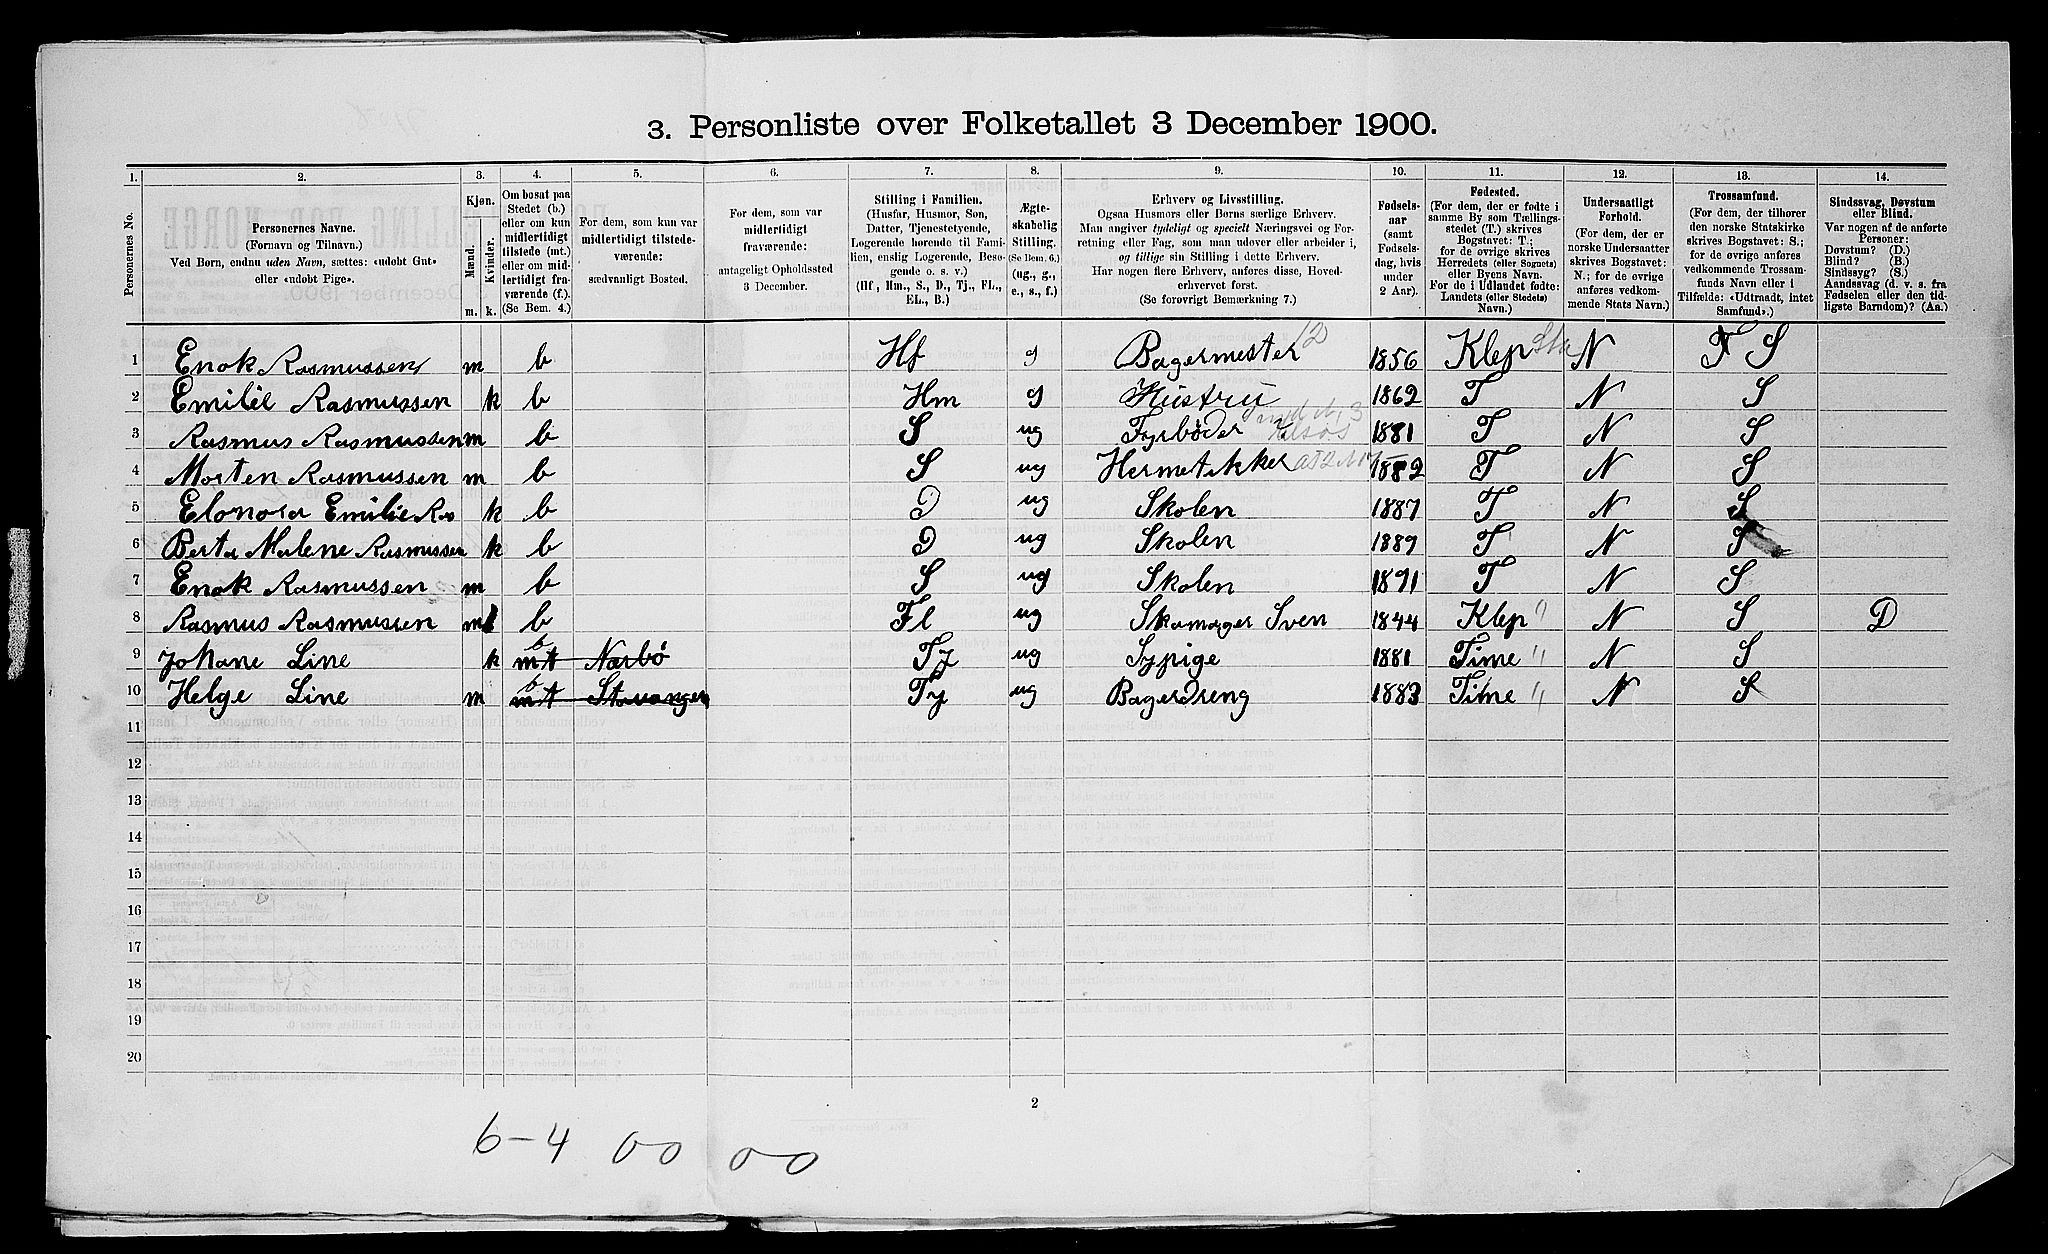 3. Personliste over Folketallet 3 December 1900.
1. 2. 3. 4. 5. 6. 7. 8. 9. 10. 11. 12. 13. 14.
Personernes No.
Personernes Navne.
(Fornavn og Tilnavn.)
Ved Børn, endnu uden Navn, sættes: «udøbt Gut»
eller «udøbt Pige».
Kjøn.
Mænd. Kvinder.
m. k.
Om bosat paa
Stedet (b.)
eller om kun
midlertidigt
tilstede (mt.)
eller om mid-
lertidigt fra-
værende (f.).
(Se Bem. 4.)
For dem, som kun var
midlertidigt tilstede-
værende:
sædvanligt Bosted.
For dem, som var
midlertidigt
fraværende:
antageligt Opholdssted
3 December.
Stilling i Familien.
(Husfar, Husmor, Søn,
Datter, Tjenestetyende,
Logerende hørende til Fami-
lien, enslig Logerende, Besø-
gende o. s. v.)
(Hf, Hm., S., D., Tj., FL.,
EL., B.)
Ægte-
skabelig
Stilling.
(Se Bem. 6.)
(ug., g.,
e., s., f.)
Erhverv og Livsstilling.
Ogsaa Husmors eller Børns særlige Erhverv.
Man angiver tydeligt og specielt Næringsvei og For-
retning eller Fag, som man udover eller arbeider i,
og tillige sin Stilling i dette Erhverv.
Har nogen flere Erhverv, anføres disse, Hoved-
erhvervet først.
(Se forøvrigt Bemærkning 7.)
Fødsels-
aar
(samt
Fødsels-
dag, hvis
under
2 Aar).
Fødested.
(For dem, der er fødte i
samme By som Tællings-
stedet (T.) skrives
Bogstavet: T.;
for de øvrige skrives
Herredets (eller Sognets)
eller Byens Navn.
For de i Udlandet fødte:
Landets (eller Stedets)
Navn.)
Undersaatligt
Forhold.
(For dem, der er
norske Undersaatter
skrives Bogstavet:
N.; for de øvrige
anføres vedkom-
mende Stats Navn.)
Trossamfund.
(For dem, der tilhører
den norske Statskirke
skrives Bogstavet: S.;
for de øvrige anføres
vedkommende Trossam-
funds Navn eller i
Tilfælde: «Udtraadt, intet
Samfund».)
Sindssvag, Døvstum
eller Blind.
Var nogen af de anførte
Personer:
Døvstum? (D.)
Blind? (B.)
Sindssyg? (S.)
Aandssvag (d. v. s. fra
Fødselen eller den tid-
ligste Barndom)? (Aa.)
1 Enok Rasmussen m b Hf g Bagermester 12 1856 Klep N S
2 Emilie Rasmussen k b Hm g Hustru 1862 T N S
3 Rasmus Rasmussen m b S ug Fyrbøder 1881 T N S
4 Morten Rasmussen m b S ug Hermetikker 1882 T N S
5 Elonora Emilie Ras k b D ug Skolen 1887 T N S
6 Berta Malene Rasmussen k b D ug Skolen 1889 T N S
7 Enok Rasmussen m b S ug Skolen 1891 T N S
8 Rasmus Rasmussen m b Fl ug Skomager Sven 1844 Klep " N S D
9 Johane Line k b mt Nærbø Tj ug Sypige 1881 Time " N S
10 Helge Line m b mt Stavanger Tj ug Bagerdreng 1883 Time " N S
11
12
13
14
15
16
17
18
19
20
2
6-4 00 00